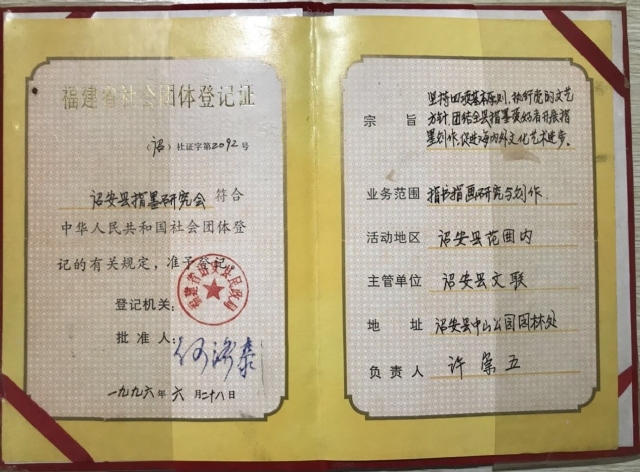 福建省社会团体登记证
（诏）社证字第2092号
诏安县指墨研究会 符合
中华人民共和国社会团体登
记的有关规定，准予登记。
登记机关：
福建省诏安县民政局
批准人：
一九九六年六月二十八日
宗旨 坚持四项基本原则，执行党的文艺
方针，团结全县指墨爱好者开展指
墨创作，促进海内外文化艺术进步。
业务范围 指书指画研究与创作.
活动地区 诏安县范围内
主管单位 诏安县文联
地址 诏安县中山公园园林处
负责人 许宗五